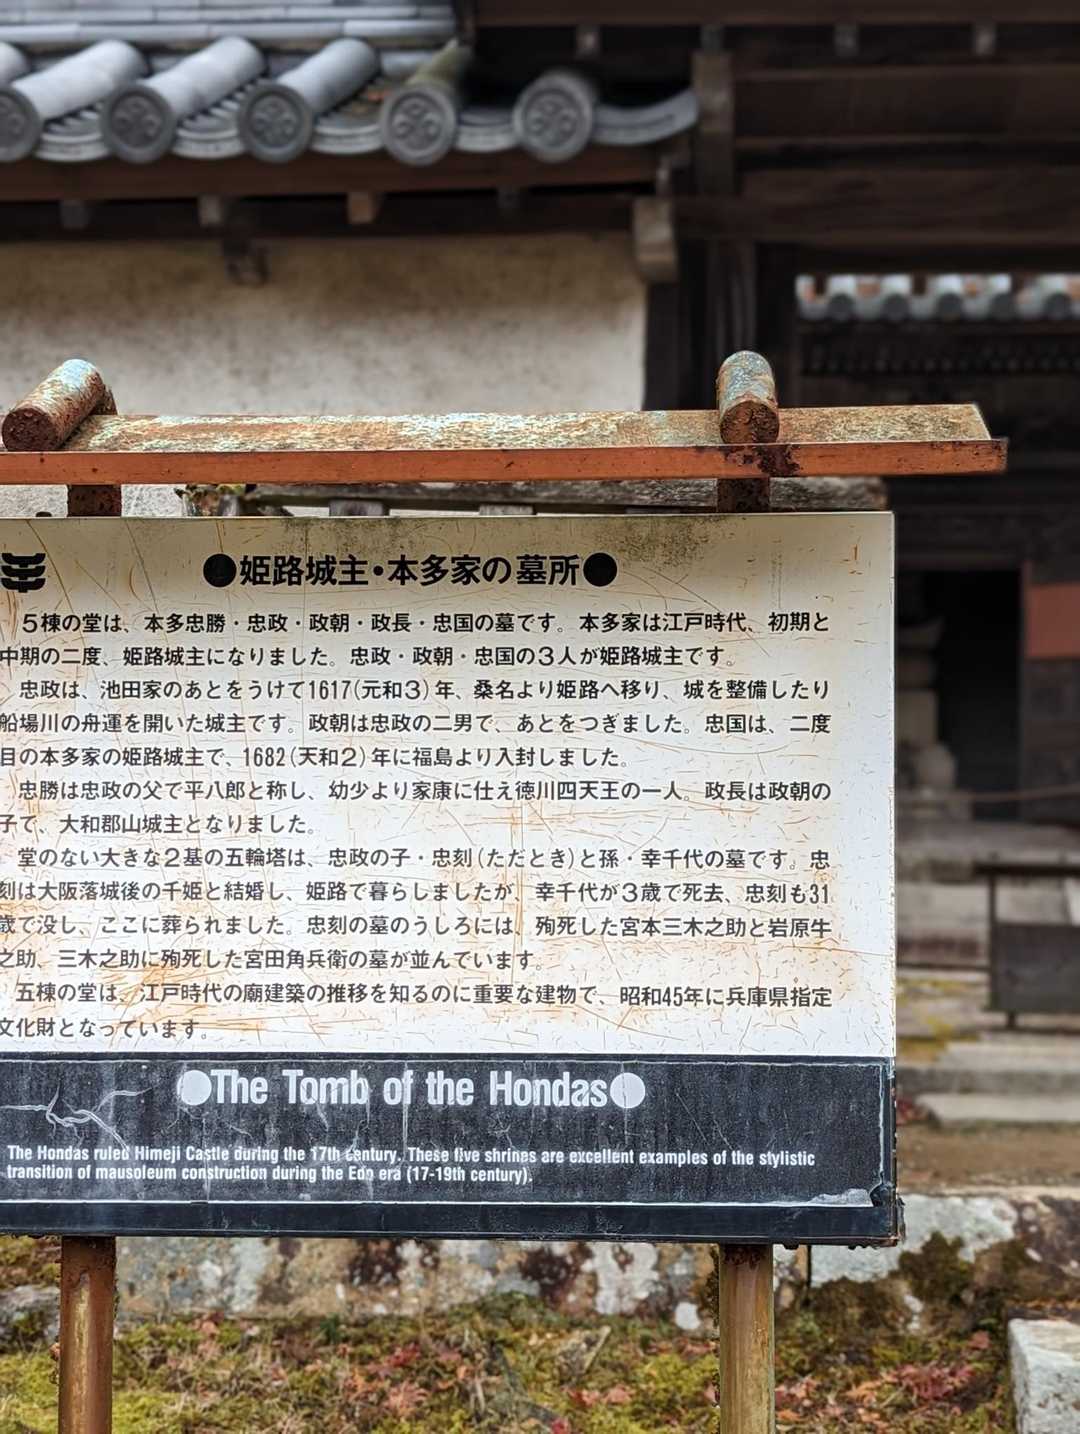 ●姫路城主・本多家の墓所●
5棟の堂は、本多忠勝・忠政・政朝・政長・忠国の墓です。本多家は江戸時代、初期と
中期の二度、姫路城主になりました。忠政・政朝・忠国の3人が姫路城主です。
忠政は、池田家のあとをうけて1617(元和3)年、桑名より姫路へ移り、城を整備したり
船場川の舟運を開いた城主です。政朝は忠政の二男で、あとをつぎました。忠国は、二度
目の本多家の姫路城主で、1682(天和2)年に福島より入封しました。
忠勝は忠政の父で平八郎と称し、幼少より家康に仕え徳川四天王の一人。政長は政朝の
子で、大和郡山城主となりました。
堂のない大きな2基の五輪塔は、忠政の子・忠刻(ただとき)と孫・幸千代の墓です。忠
刻は大阪落城後の千姫と結婚し、姫路で暮らしましたが、幸千代が3歳で死去、忠刻も31
歳で没し、ここに葬られました。忠刻の墓のうしろには、殉死した宮本三木之助と岩原牛
之助、三木之助に殉死した宮田角兵衛の墓が並んでいます。
五棟の堂は、江戸時代の廟建築の推移を知るのに重要な建物で、昭和45年に兵庫県指定
文化財となっています。
●The Tomb of the Hondas●
The Hondas ruled Himeji Castle during the 17th century. These five shrines are excellent examples of the stylistic
transition of mausoleum construction during the Edo era (17-19th century).